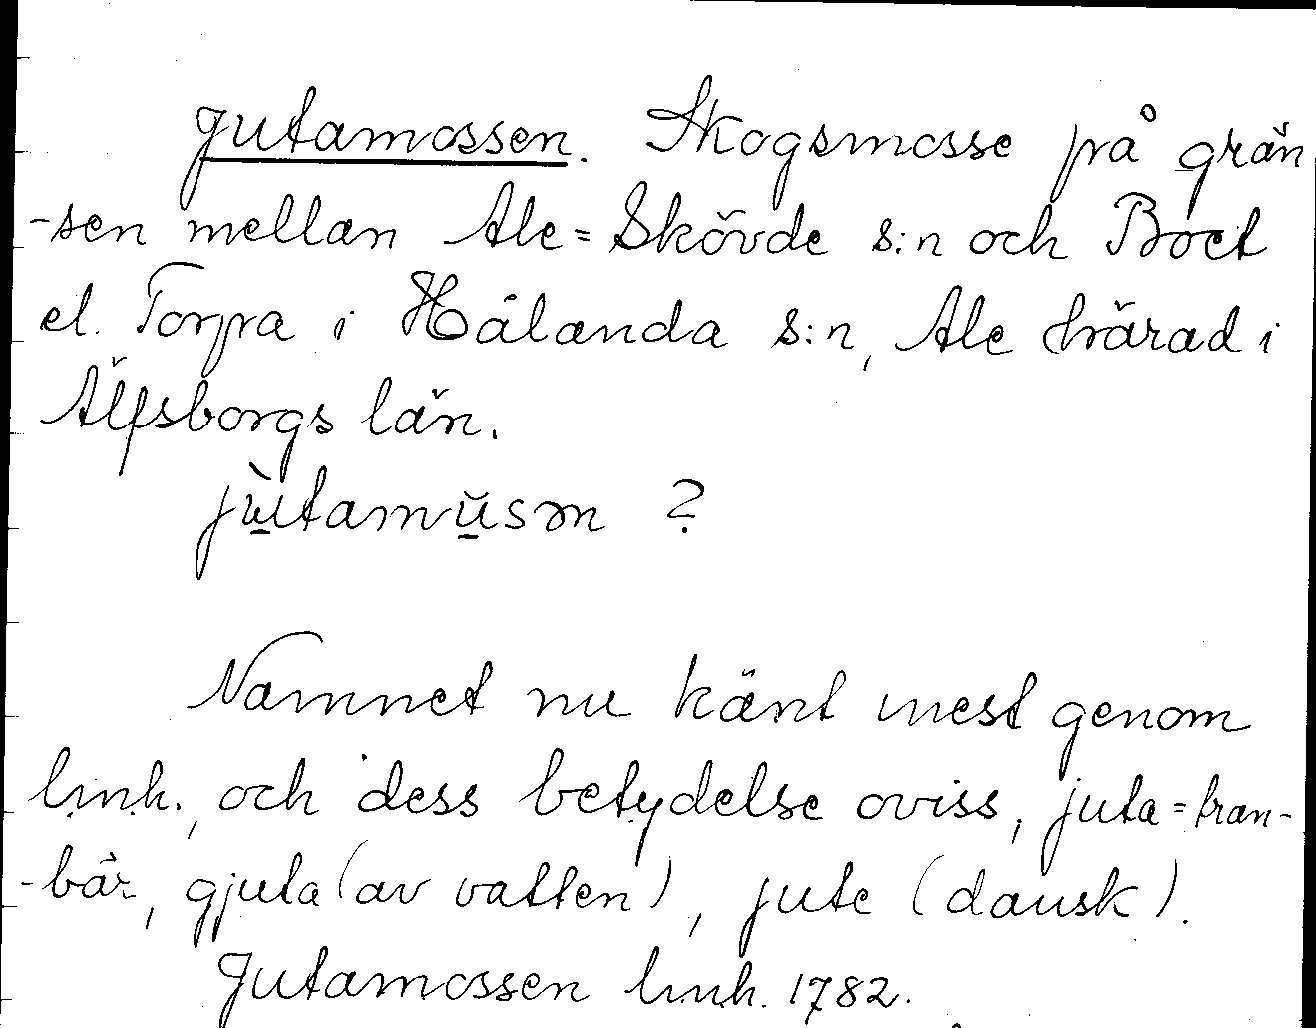 Jutamossen. Skogsmosse på grän
-sen mellan Ale=Skövde s:n och Boet
el. Torpa i Hålanda s:n, Ale härad i
Älfsborgs län.
jùtamŭsɘn ?
Namnet nu känt mest genom
lmh., och dess betydelse oviss, juta=tran-
-bär, gjuta (av vatten), jute (dansk).
Jutamossen lmh. 1782.